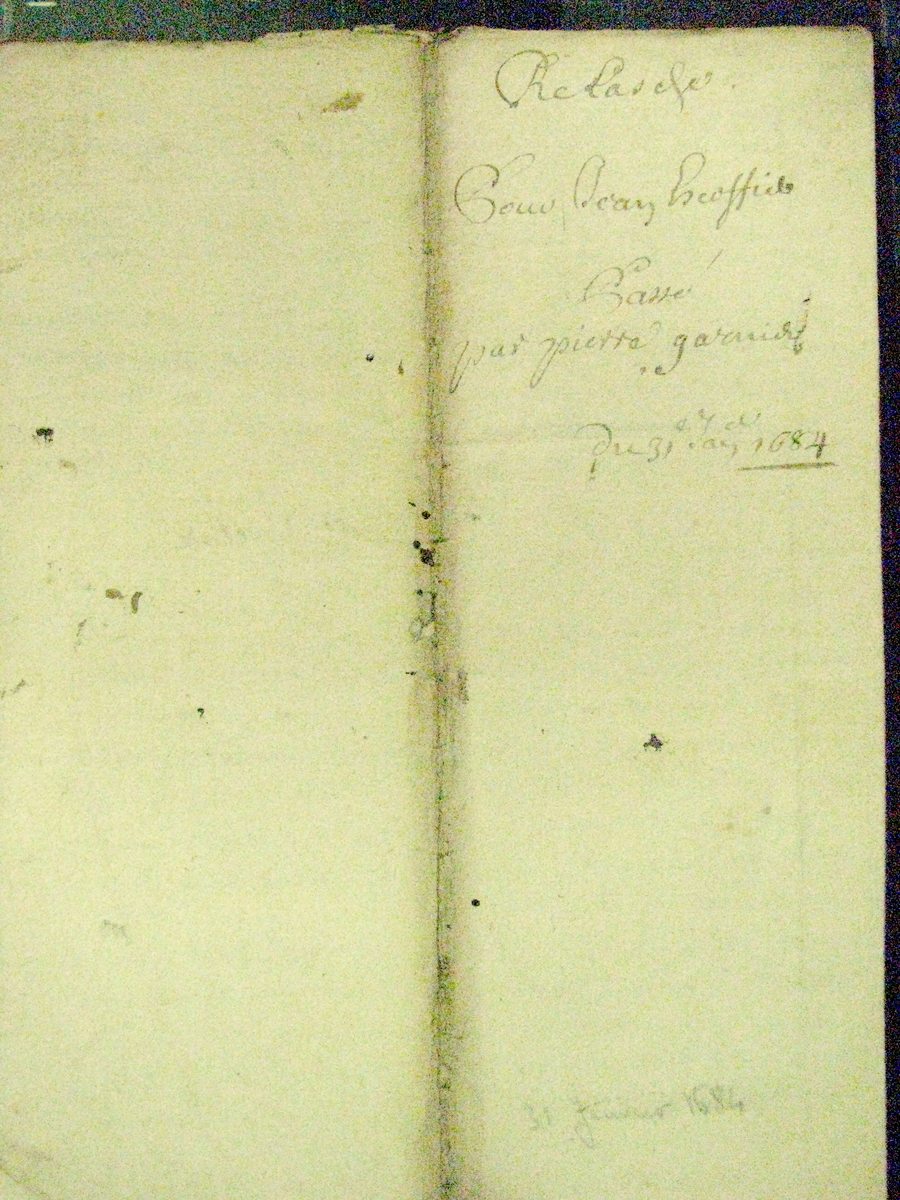 Relasche
Pour Jean heoffie
Passé
par pierre garnier
Du 31 Janv 1684
31 Janvier 1684